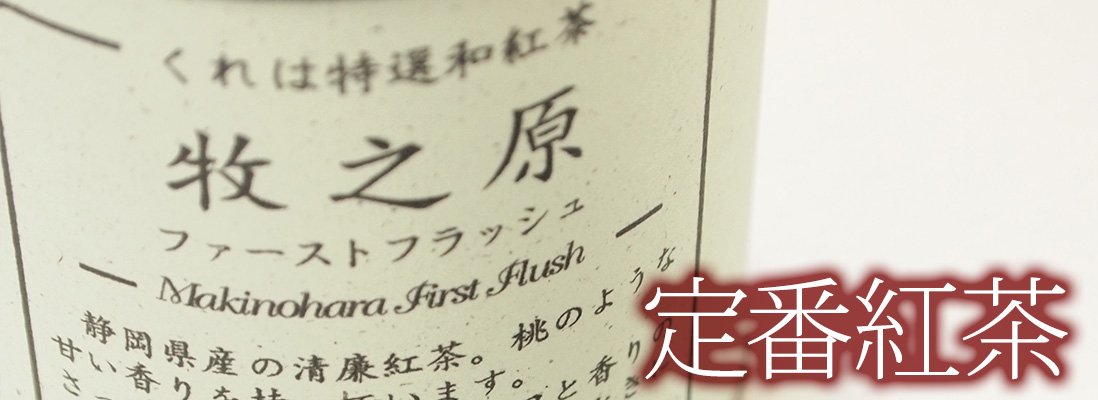 くれは特選和紅茶
牧之原
ファーストフラッシュ
Makinohara First Flush
静岡県産の清廉紅茶。桃のような
甘い香りを持
ます。
と香りの
さ
定番紅茶